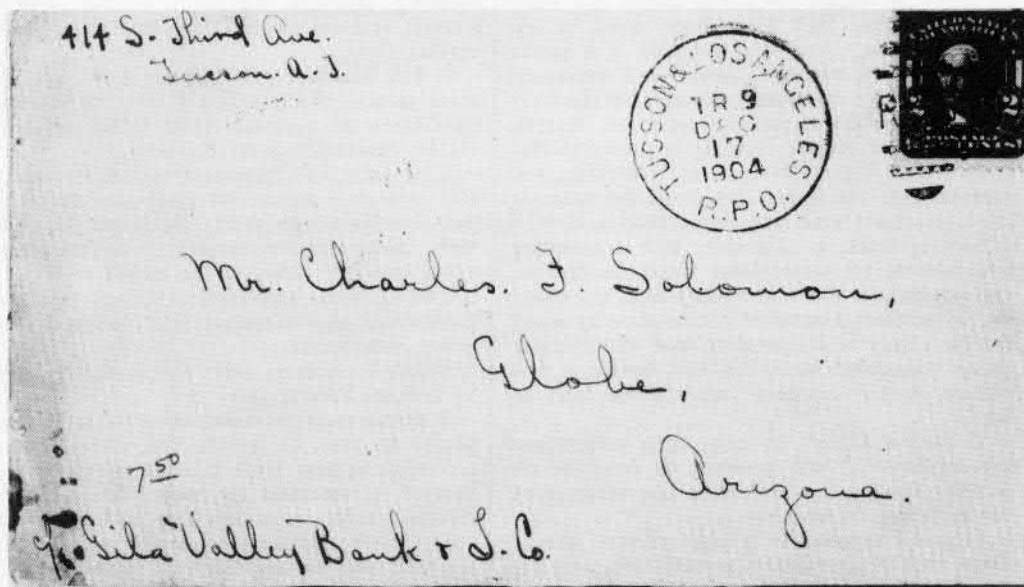 414 S. Third Ave.
Tucson. A. T.
TUCSON & LOS ANGELES
TR 9
DEC
17
1904
R.P.O.
2 2
Mr. Charles. F. Solomon,
Globe,
Arizona.
7 50
c/o Gila Valley Bank & T. Co.